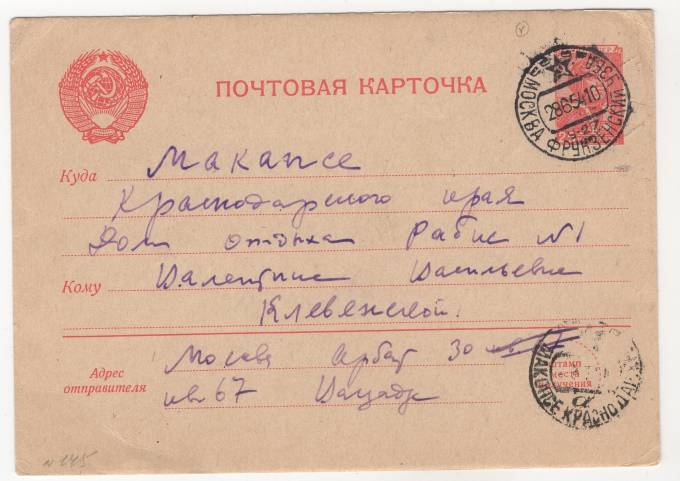 ПОЧТОВАЯ КАРТОЧКА
МОСКВА ФРУНЗЕНСКИЙ
28 6 54 10
Куда Макапсе
Краснодарского края
Дом отдыха Рабис N1
Кому Валентине Васильевне
Клевенской.
Адрес отправителя
Москва Арбат 30
кв 67
Штамп места получения
МАКАПСЕ КРАСНОДАР
N 145